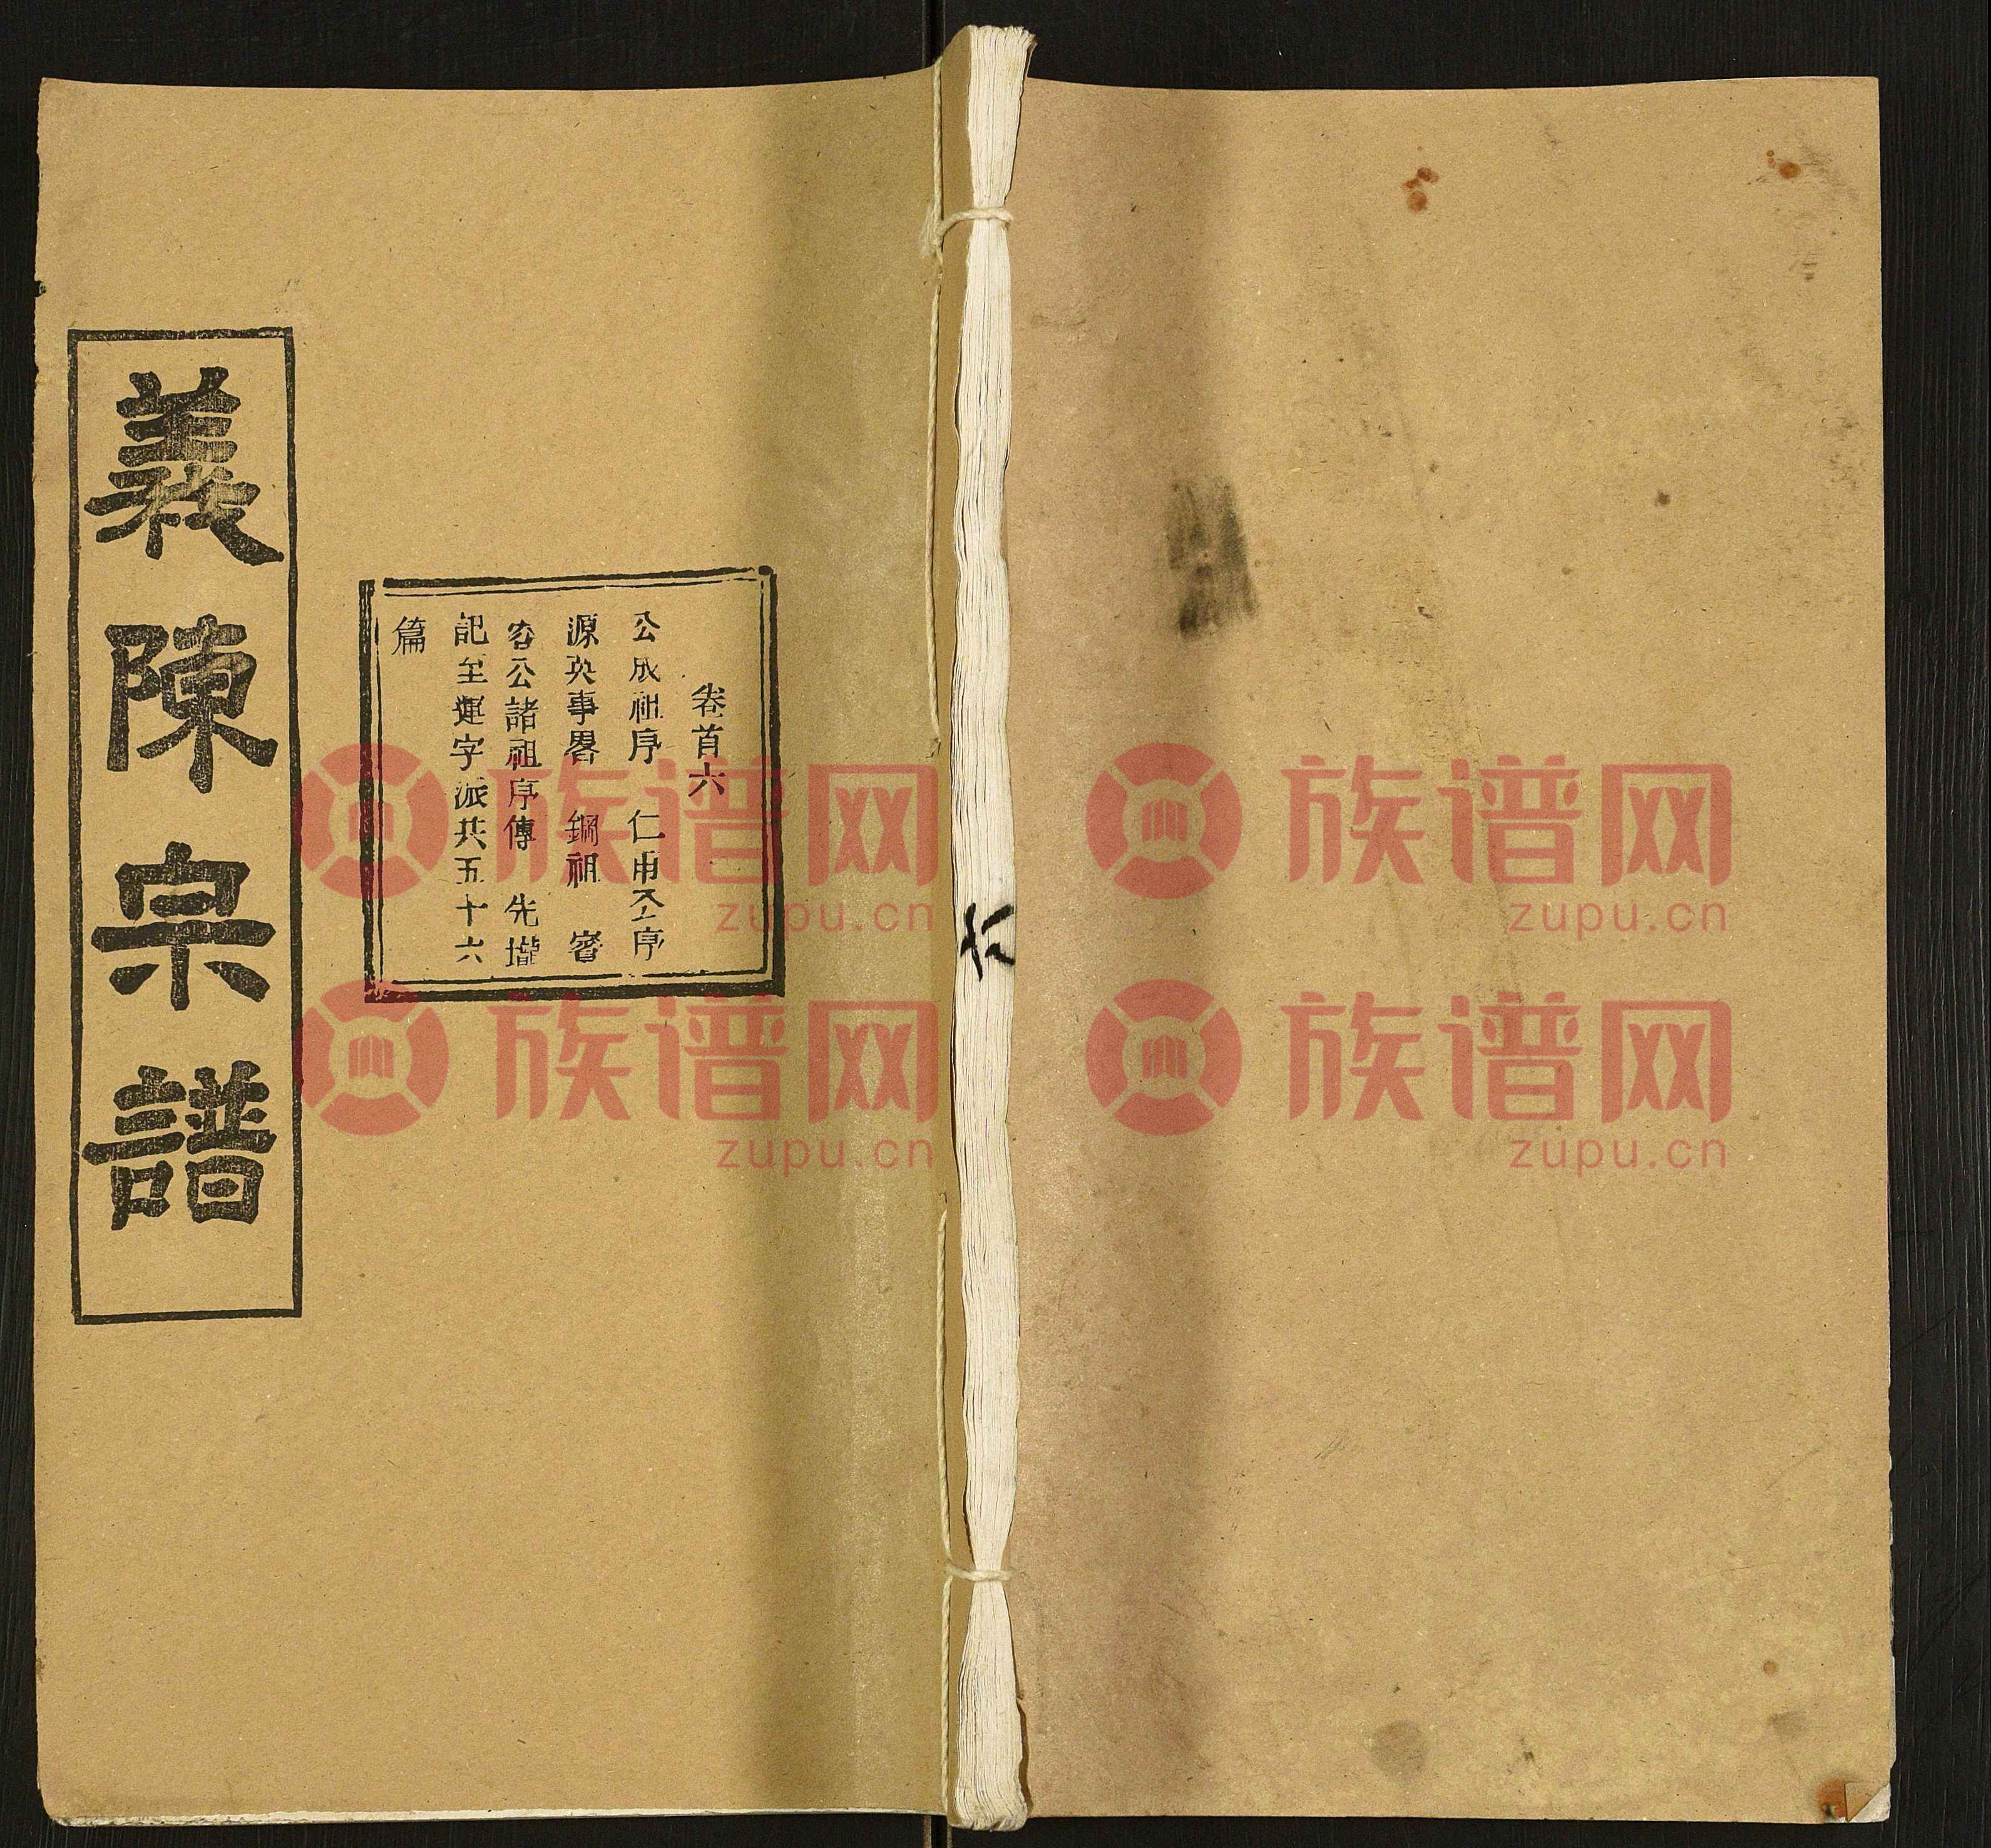 義陳宗譜
卷首六
公成祖序 仁甫公序
源英事畧 鋼祖 容
容公諸祖序傳 先壠
記至運字派共五十六
篇
族谱网
zupu.cn
族谱网
zupu.cn
族谱网
zupu.cn
族谱网
zupu.cn